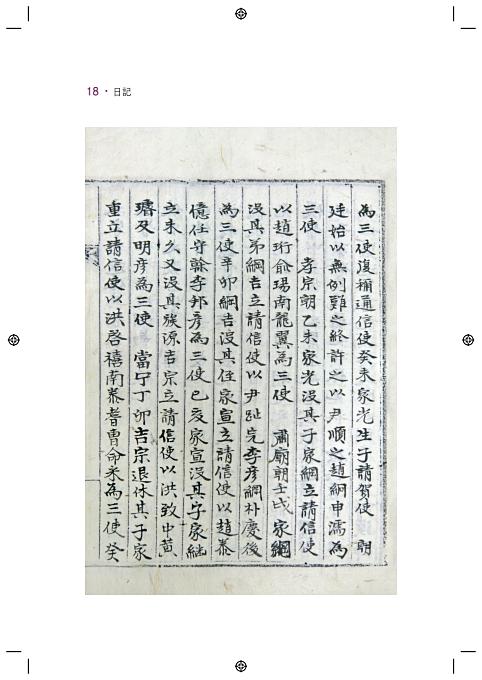 18 · 日記
為三使復稱通信使癸未家光生子請賀使 朝
廷始以無例難之終許之以尹順之趙絅申濡為
三使 孝宗朝乙未家光沒其子家綱立請信使
以趙珩兪瑒南龍翼為三使 肅廟朝壬戌家綱
沒其弟綱吉立請信使以尹趾完李彦綱朴慶後
為三使辛卯綱吉沒其侄家宣立請信使以趙泰
億任守幹李邦彦為三使己亥家宣沒其子家継
立未久又沒其族源吉宗立請信使以洪致中黄
璿及明彦為三使 當宁丁卯吉宗退休其子家
重立請信使以洪啓禧南泰耆曹命采為三使癸